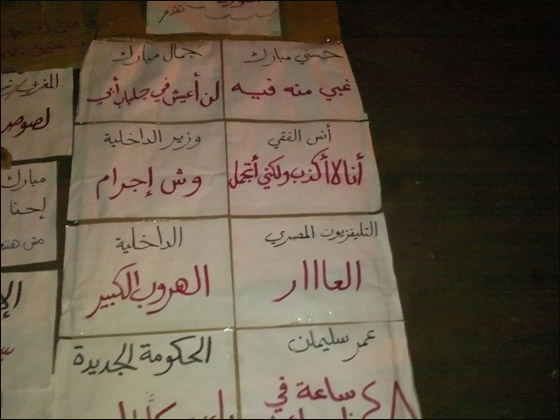 حسني مبارك
غبي منه فيه
جمال مبارك
لن أعيش في جلباب أبي
أنس الفقي
أنا لا أكذب ولكني أتجمل
وزير الداخلية
وش إجرام
التليفزيون المصري
العااار
الداخلية
الهروب الكبير
عمر سليمان
٤٨ ساعة في
الحكومة الجديدة
لصوص
مبارك
إحنا
مش